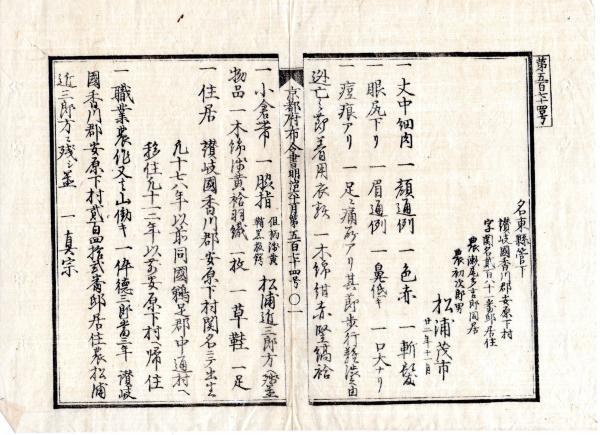 第五百七十四号
名東縣管下
讃岐國香川郡安原下村
字関名貳百八十一番邸居住
農瀬尾多吉郎同居
農初次郎男
松浦茂市
廿二年十一月
一 丈中細肉 一 顔通例 一 色赤 一 斬髪
一 眼尻下リ 一 眉通例 一 鼻低キ 一 口大ナリ
一 痘痕アリ 一 足ニ痛所アリ其節歩行難渋ノ由
逃亡之節着用衣類 一 木綿紺赤竪縞袷
京都府布令書明治六年十月第五百七十四号 〇一
一 小倉帯 一 脇指 但柄渋黄 鞘黒 松浦近三郎方ヘ残置
物品 一 木綿浅黄袷羽織 一枚 一 草鞋 一足
一 住居 讃岐國香川郡安原下村関名ニテ出生
凡十七八年以前同國鵜足郡中通村ヘ
移住凡十二三年以前安原下村ヘ帰住
一 職業農作又ハ山働キ 一 伜徳三郎當三年 讃岐
國香川郡安原下村貳百四拾貳番邸居住農松浦
近三郎方ニ残シ置 一 真宗